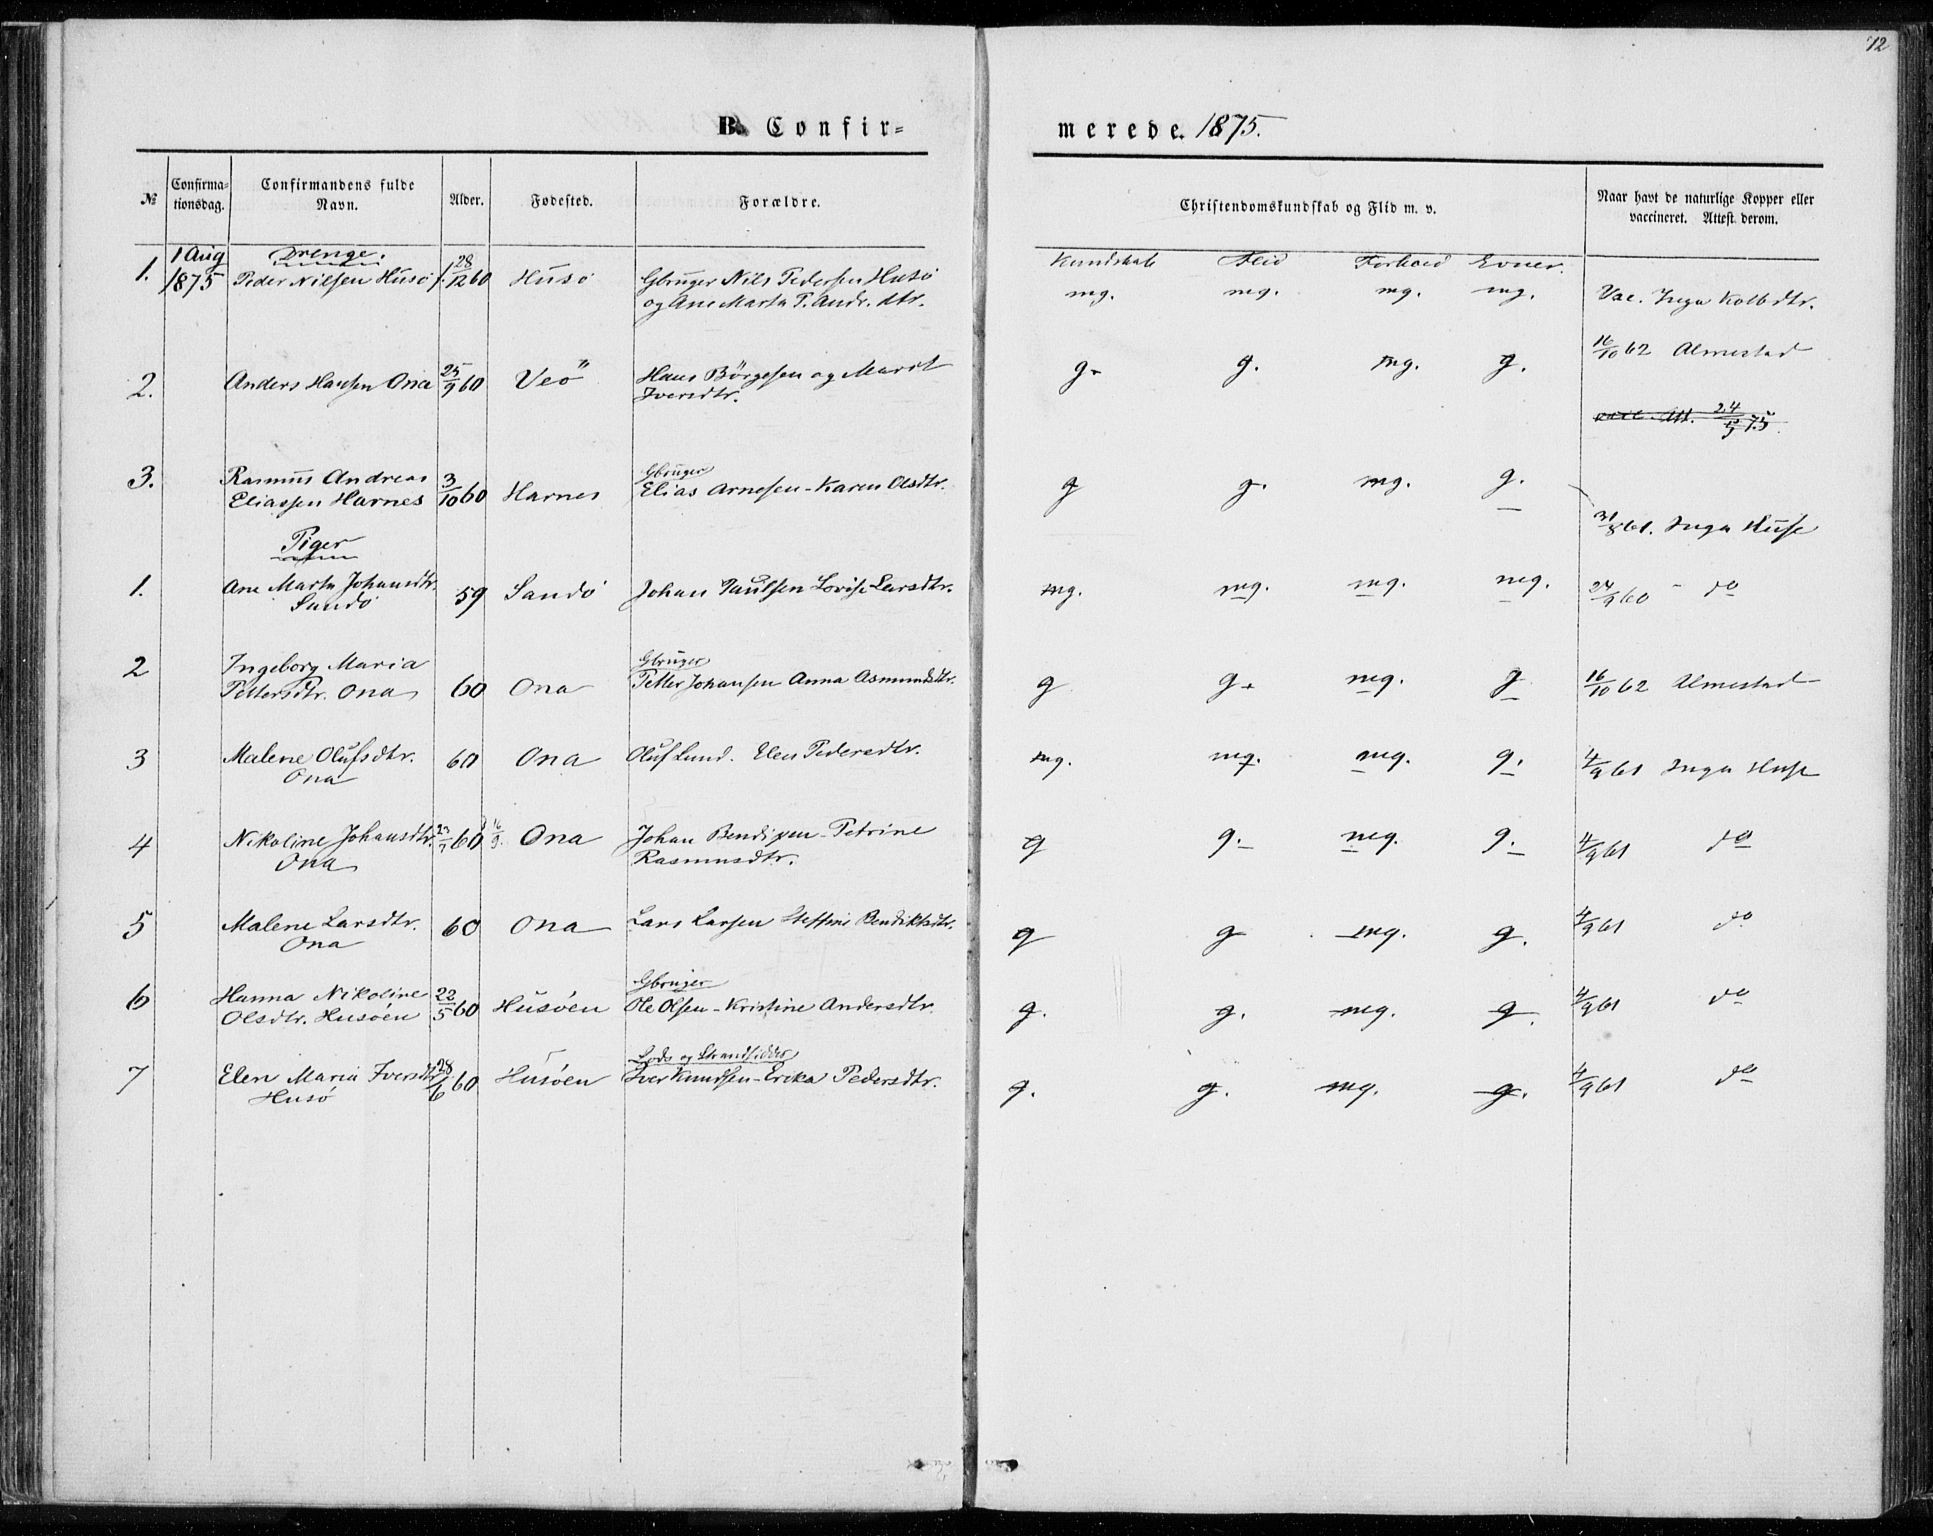 12
B. Confir=
merede. 1875.
№
Confirma=
tionsdag.
Confirmandens fulde
Navn.
Alder.
Fødested.
Forældre.
Christendomskundskab og Flid m. v.
Naar havt de naturlige Kopper eller
vaccineret. Attest derom.
Kundskab Flid Forhold Evner.
Drenge.
1. 1 Aug 1875 Peder Nilsen Husö f. 28/12 60 Husö Gbruger Nils Pedersen Husö
og Ane Marta P. Andr. dtr.
mg. mg. mg. mg. Vac. Inga Kolb dtr.
2. Anders Hansen Ona 25/9 60 Veö Hans Börgesen og Marit
Iversdtr.
g. g. mg. g. 16/10 62 Almestad
Att. 24/5 75.
3. Rasmus Andreas
Eliassen Harnes 3/10 60 Harnes Gbruger
Elias Arnesen - Karen Olsdtr.
g g. mg. g.
31/8 61. Inga Huse
Piger
1. Ane Marta Johansdtr.
Sandö 59 Sandö Johan Paulsen Lovise Larsdtr.
mg. mg. mg. mg. 24/9 60 - do
2 Ingeborg Maria
Pettersdtr. Ona 60 Ona Gbruger
Petter Johansen Anna Asmundsdtr.
g g. mg. g 16/10 62 Almestad
3 Malene Olufsdtr.
Ona 60 Ona Oluf Lund. Elen Pedersdtr.
mg. mg. mg. g. 4/9 61 Inga Huse
4 Nikoline Johansdtr.
Ona 60 Ona Johan Bendixen - Petrine
Rasmusdtr.
g g. mg. g. 4/9 61 do
5 Malene Larsdtr.
Ona 60 Ona Lars Larsen Steffine Bendiktsdtr.
g g mg. g. 4/9 61 do
6 Hanna Nikoline
Olsdtr. Husöen 22/5 60 Husöen Gbruger
Ole Olsen - Kristine Andersdtr.
g. g. mg. g. 4/9 61 do
7 Elen Maria Iversdtr.
Husö 28/6 60 Husöen Lods og Strandsidder
Iver Knudsen - Erika Pedersdtr.
g. g. mg. g. 4/9 61 do